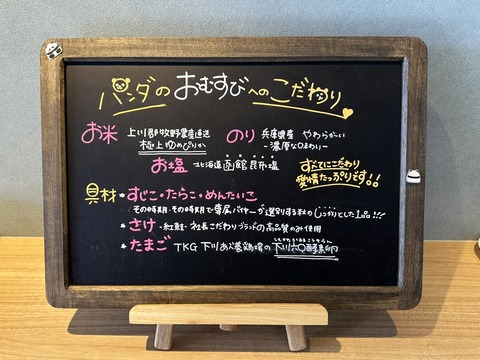 パンダのおむすびへのこだわり
お米 上川郡牧野農産直送
極上ゆめぴりか
のり 兵庫県産 やわらかい
-濃厚な味わい-
お塩 北海道函館昆布塩
すべてにこだわり
愛情たっぷりです!!
具材 すじこ・たらこ・めんたいこ
その時期・その時期で専属バイヤーが選別する粒のしっかりとした1品!!!
さけ -紅鮭- 社長こだわりブランドの高品質のみ使用
たまご TKG 下川あべ養鶏場の下川六〇酵素卵